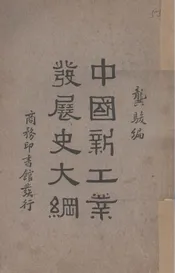 龔駿編
中國新工業
發展史大綱
商務印書館發行